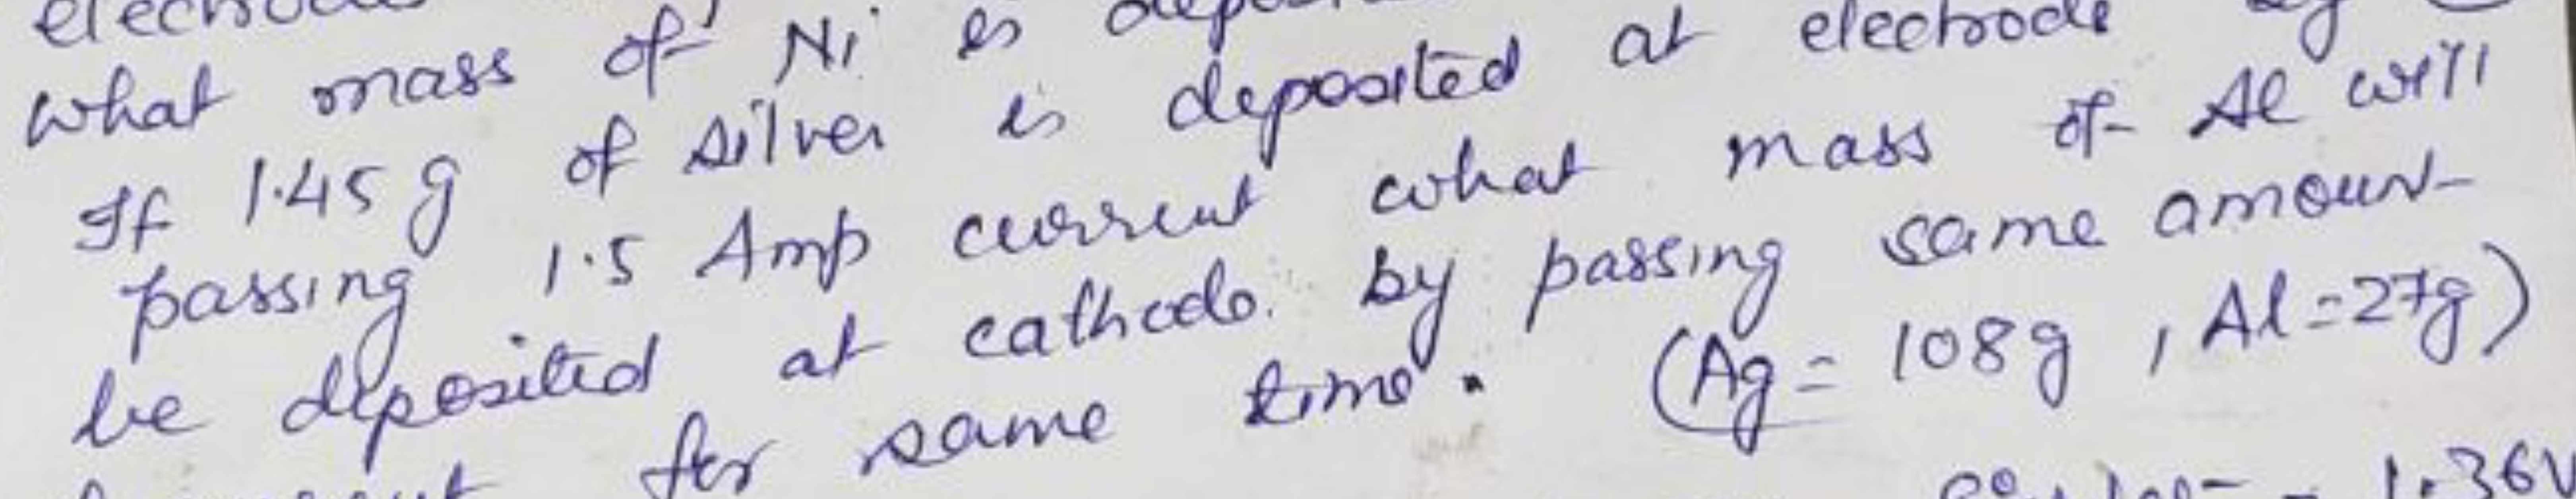 what mass of Ni is
If 1.45 g of silver is deposited at electrode by
passing 1.5 Amp current what mass of Al will
be deposited at cathode. by passing same amount
for same time. (Ag = 108g , Al = 27g)
1.36V